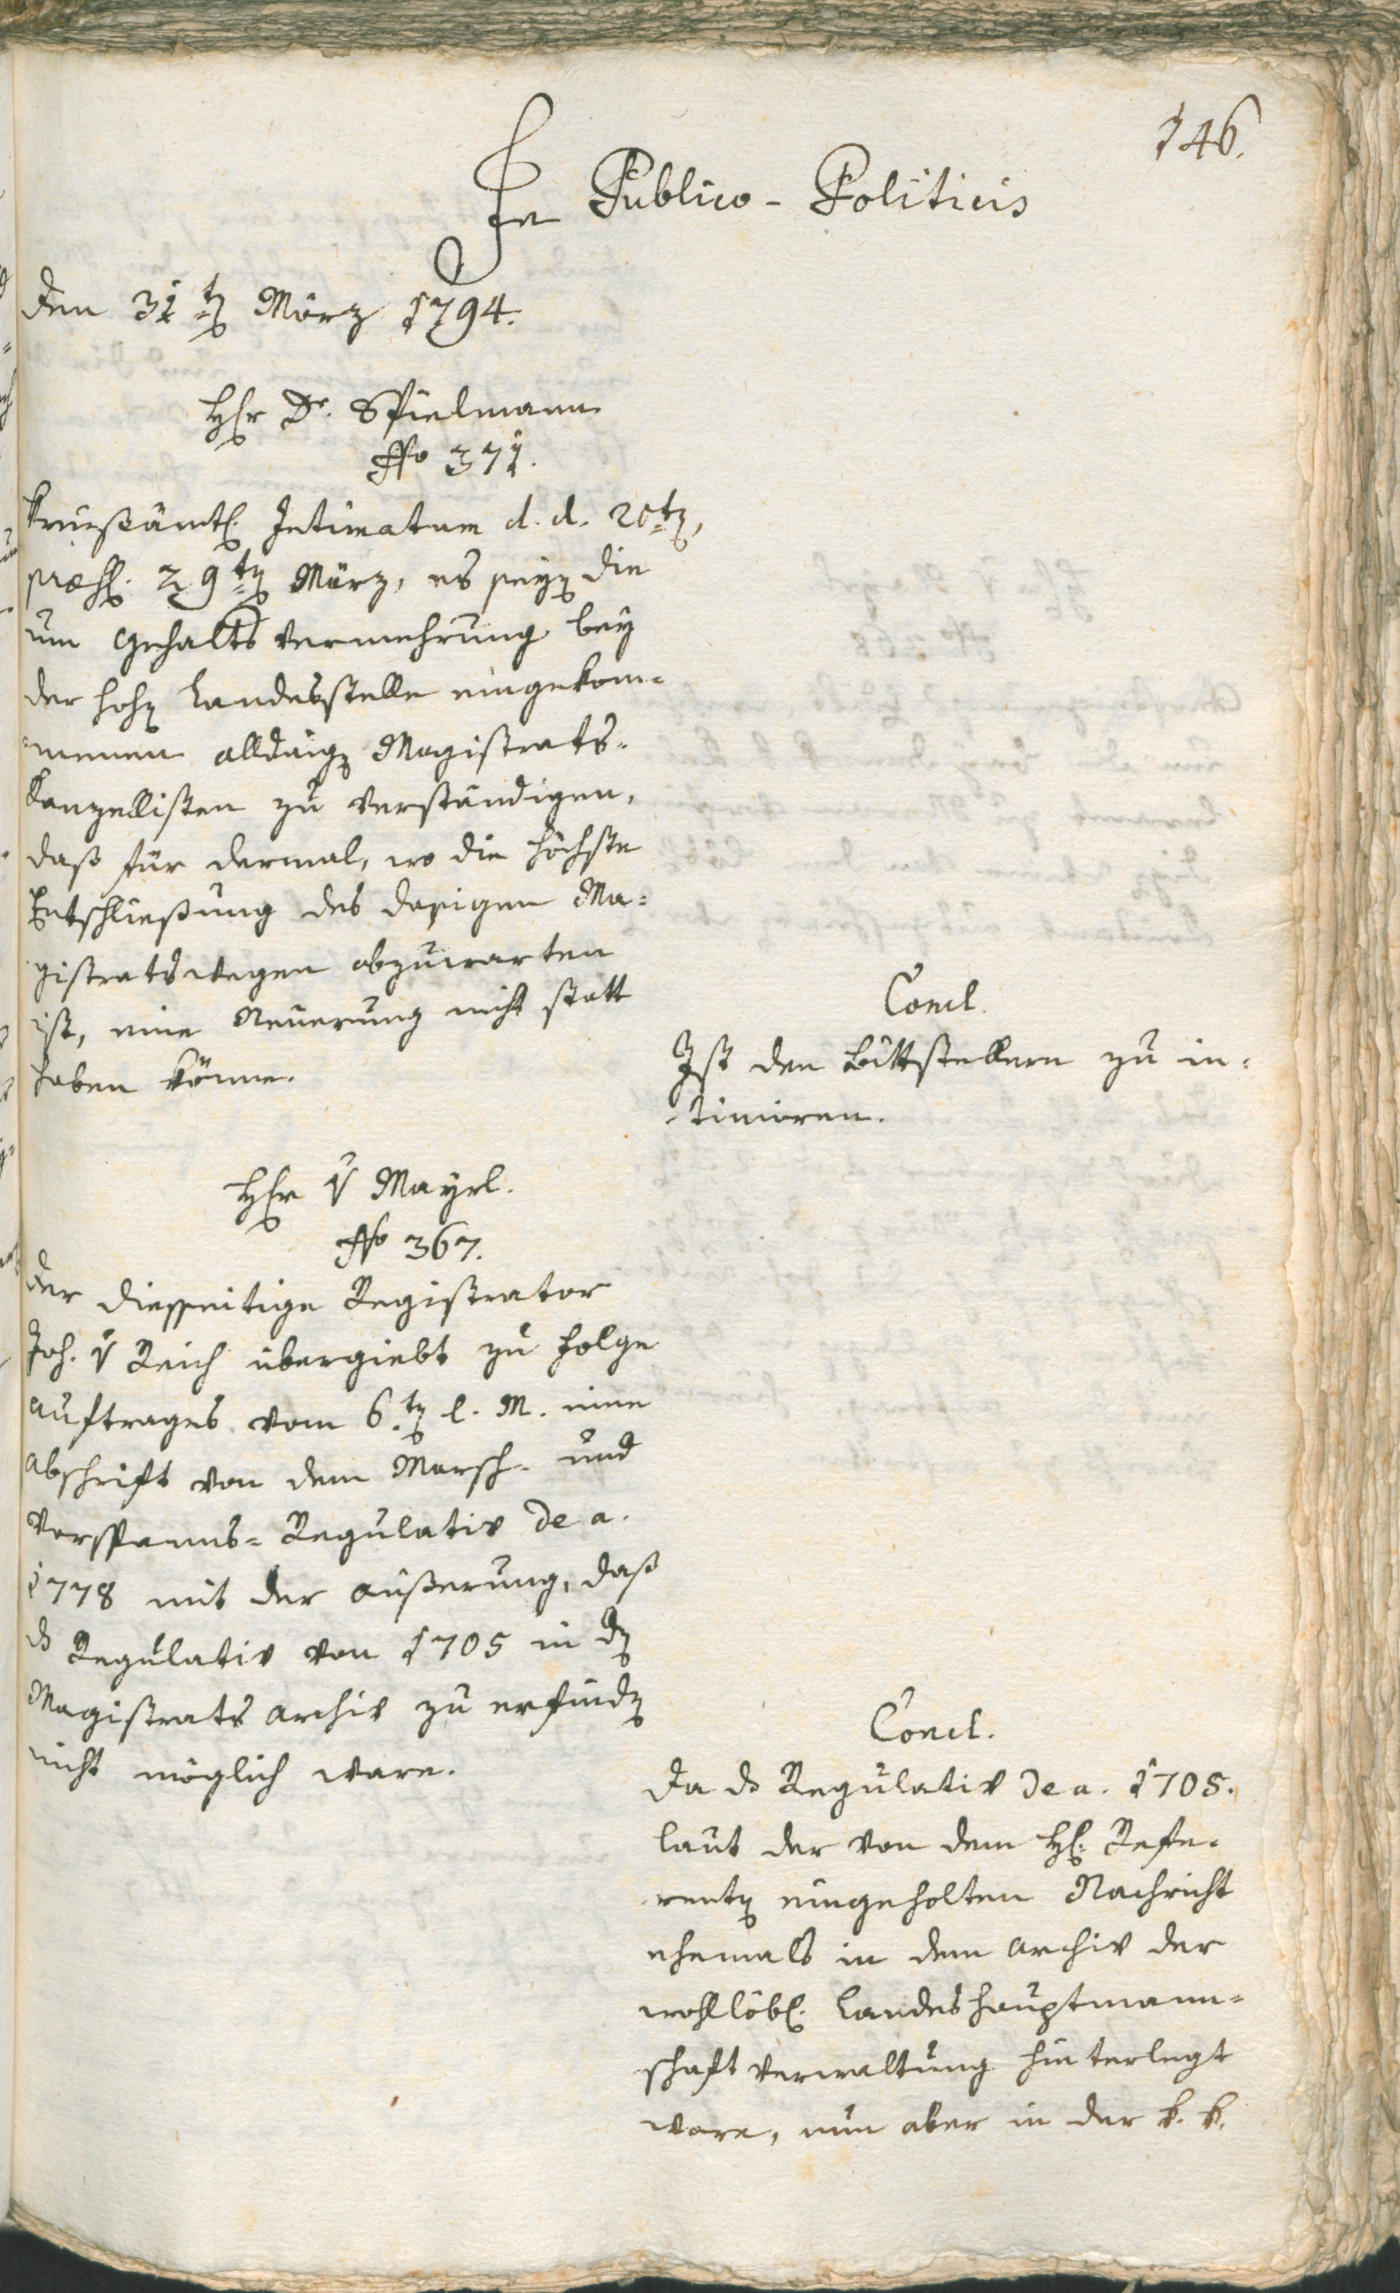 146.
In Publico-Politicis
den 31tn März 1794.
Hr Dr. Spielmann
No 371.
Kreisämtl. Intimatum d. d. 20tn,
præs. 29tn März, es seyn die
um Gehalts Vermehrung bey
der hohn Landesstelle eingekom-
menen alldaign Magistrats-
Kanzellisten zu verständigen,
daß für dermal, wo die höchste
Entschließung des dasigen Ma-
gistratswegen abzuwarten
ist, eine Neuerung nicht statt
haben könne.
Concl.
Ist den Bittstellern zu in-
timiren.
Hr v Mayrl.
No 367.
Der diesseitige Registrator
Joh. v Reich übergiebt zu folge
Auftrages vom 6.tn l. M. eine
Abschrift von dem Marsch- und
Vorspanns-Regulativ de a.
1778 mit der Äußerung, daß
ds Regulativ von 1705 in dn
Magistrats Archiv zu erfindn
nicht möglich ware.
Concl.
Da ds Regulativ de a. 1705.
laut der von dem H. Refe-
rentn eingeholten Nachricht
ehemals in dem Archiv der
wohllöbl. Landeshauptmann-
schaft Verwaltung hinterlegt
ware, nun aber in der k. k.